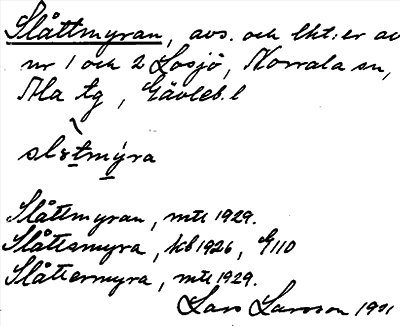 Slåttmyran, avs. och lht:er av
nr 1 och 2 Losjö, Norrala sn,
Ala tg, Gävleb. l
slɵtmýra
Slåttmyran, mtl 1929.
Slåttsmyra, kb 1926, G110
Slåttermyra, mtl 1929.
Lars Larsson